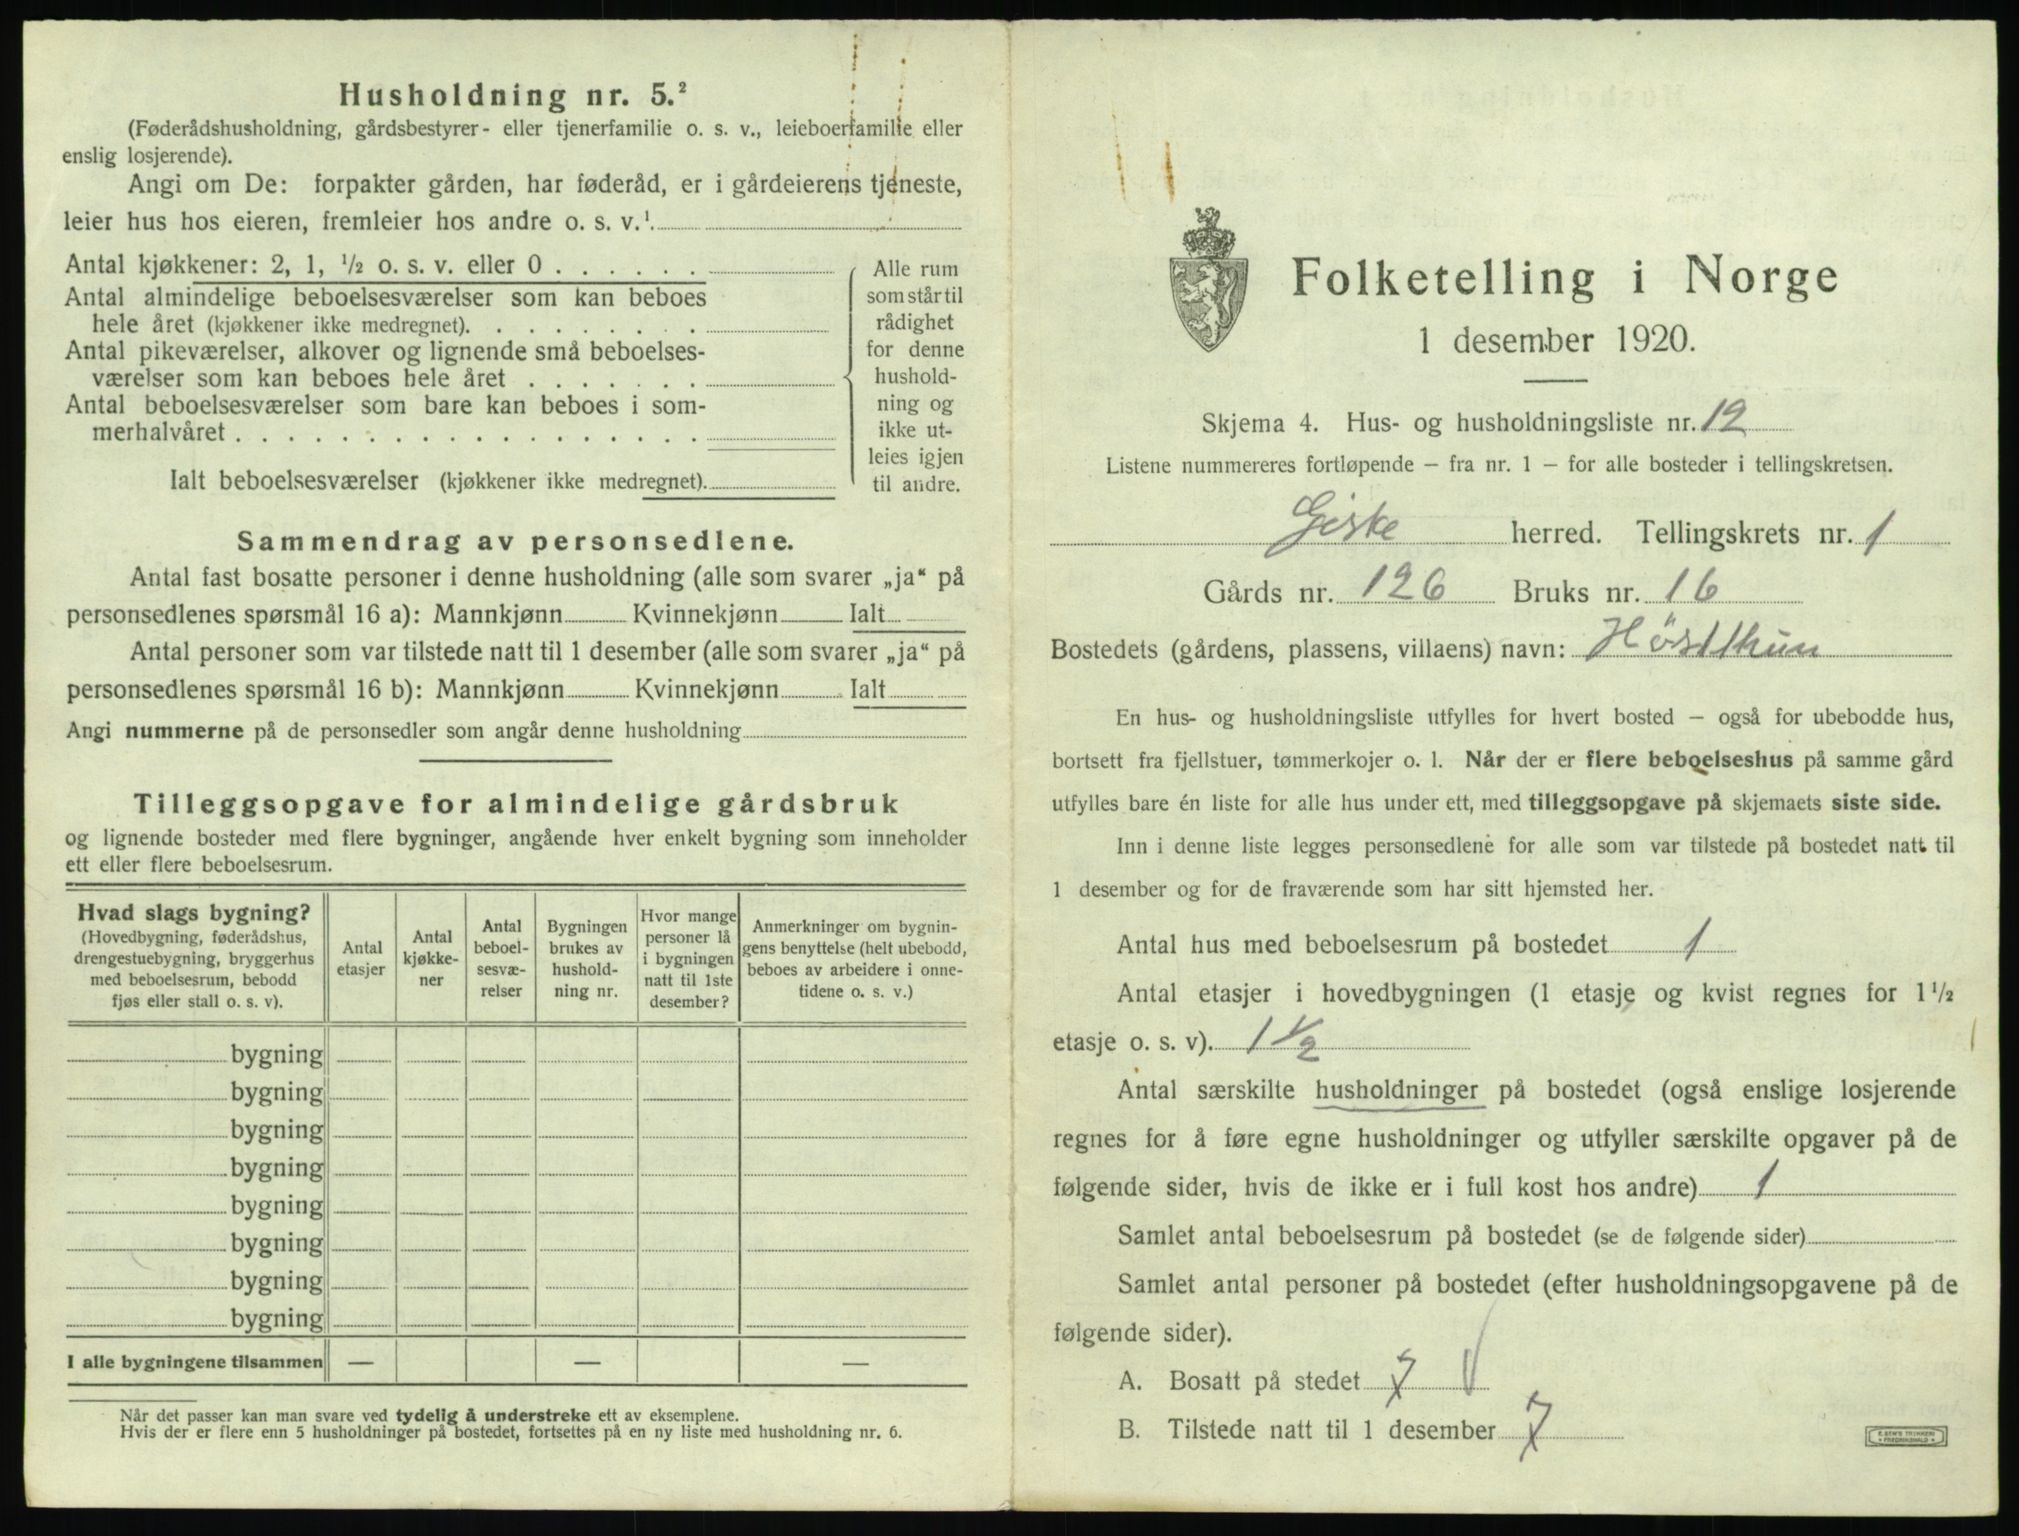 Husholdning nr. 5.²
(Føderådshusholdning, gårdsbestyrer- eller tjenerfamilie o. s. v., leieboerfamilie eller
enslig losjerende).
Angi om De: forpakter gården, har føderåd, er i gårdeierens tjeneste,
leier hus hos eieren, fremleier hos andre o. s. v.¹
Antal kjøkkener: 2, 1, ½ o. s. v. eller 0 . . . . . .
Antal almindelige beboelsesværelser som kan beboes
hele året (kjøkkener ikke medregnet). . . . . . . . .
Antal pikeværelser, alkover og lignende små beboelses-
værelser som kan beboes hele året . . . . . . .
Antal beboelsesværelser som bare kan beboes i som-
merhalvåret . . . . . . . . . . . . . . . . . .
Ialt beboelsesværelser (kjøkkener ikke medregnet).
Alle rum
som står til
rådighet
for denne
hushold-
ning og
ikke ut-
leies igjen
til andre.
Sammendrag av personsedlene.
Antal fast bosatte personer i denne husholdning (alle som svarer „ja“ på
personsedlenes spørsmål 16 a): Mannkjønn Kvinnekjønn Ialt
Antal personer som var tilstede natt til 1 desember (alle som svarer „ja“ på
personsedlenes spørsmål 16 b): Mannkjønn Kvinnekjønn Ialt
Angi nummerne på de personsedler som angår denne husholdning
Tilleggsopgave for almindelige gårdsbruk
og lignende bosteder med flere bygninger, angående hver enkelt bygning som inneholder
ett eller flere beboelsesrum.
Hvad slags bygning?
(Hovedbygning, føderådshus,
drengestuebygning, bryggerhus
med beboelsesrum, bebodd
fjøs eller stall o. s. v).
Antal
etasjer
Antal
kjøkke-
ner
Antal
beboel-
sesvæ-
relser
Bygningen
brukes av
hushold-
ning nr.
Hvor mange
personer lå
i bygningen
natt til 1ste
desember?
Anmerkninger om bygnin-
gens benyttelse (helt ubebodd,
beboes av arbeidere i onne-
tidene o. s. v.)
bygning
bygning
bygning
bygning
bygning
bygning
bygning
bygning
I alle bygningene tilsammen — — —
Når det passer kan man svare ved tydelig å understreke ett av eksemplene.
Hvis der er flere enn 5 husholdninger på bostedet, fortsettes på en ny liste med husholdning nr. 6.
Folketelling i Norge
1 desember 1920.
Skjema 4. Hus- og husholdningsliste nr. 12
Listene nummereres fortløpende – fra nr. 1 – for alle bosteder i tellingskretsen.
Giske herred. Tellingskrets nr. 1
Gårds nr. 126 Bruks nr. 16
Bostedets (gårdens, plassens, villaens) navn: Høstthun
En hus- og husholdningsliste utfylles for hvert bosted – også for ubebodde hus,
bortsett fra fjellstuer, tømmerkojer o. l. Når der er flere beboelseshus på samme gård
utfylles bare én liste for alle hus under ett, med tilleggsopgave på skjemaets siste side.
Inn i denne liste legges personsedlene for alle som var tilstede på bostedet natt til
1 desember og for de fraværende som har sitt hjemsted her.
Antal hus med beboelsesrum på bostedet 1
Antal etasjer i hovedbygningen (1 etasje og kvist regnes for 1½
etasje o. s. v). 1 ½
Antal særskilte husholdninger på bostedet (også enslige losjerende
regnes for å føre egne husholdninger og utfyller særskilte opgaver på de
følgende sider, hvis de ikke er i full kost hos andre) 1
Samlet antal beboelsesrum på bostedet (se de følgende sider)
Samlet antal personer på bostedet (efter husholdningsopgavene på de
følgende sider).
A. Bosatt på stedet 7
B. Tilstede natt til 1 desember 7